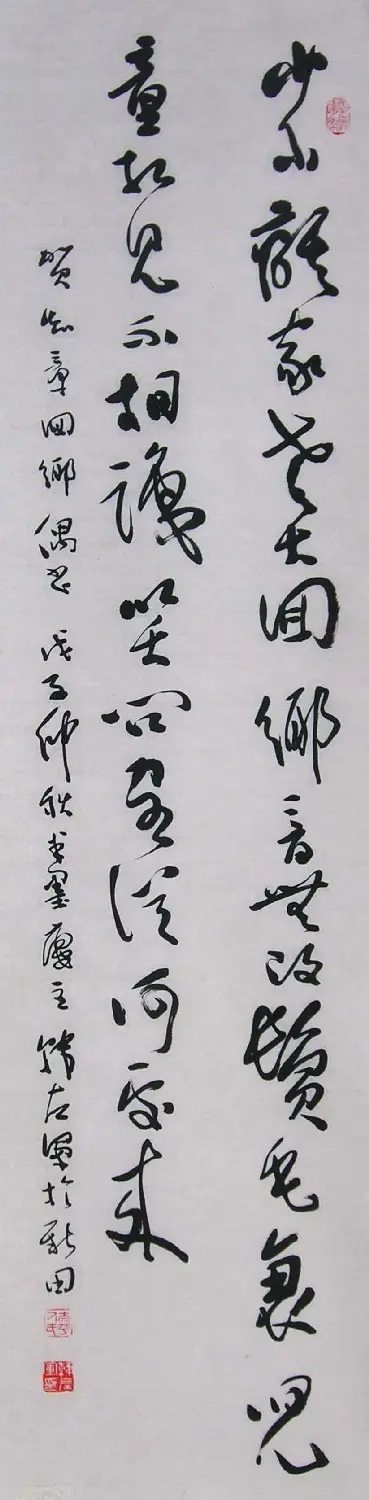 少小離家老大囬鄉音無改鬢毛衰兒
童相見不相識笑問客從何處來
賀知章囬鄉偶書 戊子仲秋 墨廔主 韓左軍於新田